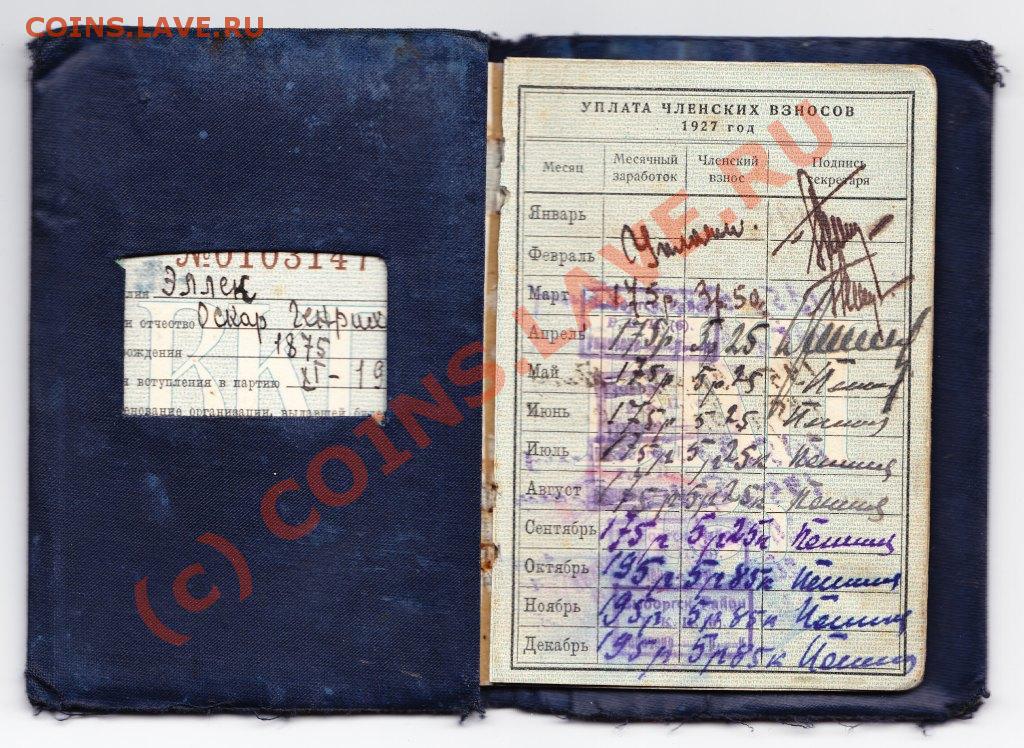 COINS.LAVE.RU
№0103147
лия Эллек
и отчество Оскар Генрих
рождения 1875
я вступления в партию XI - 19
енование организации, выдавшей би
УПЛАТА ЧЛЕНСКИХ ВЗНОСОВ
1927 год
Месяц Месячный заработок Членский взнос Подпись секретаря
Январь
Февраль
Март 175р 3р. 50
Апрель 175р 5р 25к
Май 175р 5р.25к
Июнь 175р 5 25
Июль 175р 5р25к
Август 175р 5р25к
Сентябрь 175р 5р25к
Октябрь 195р 5р85к
Ноябрь 195р 5р 85к
Декабрь 195р 5р85к
(c) COINS.LAVE.RU